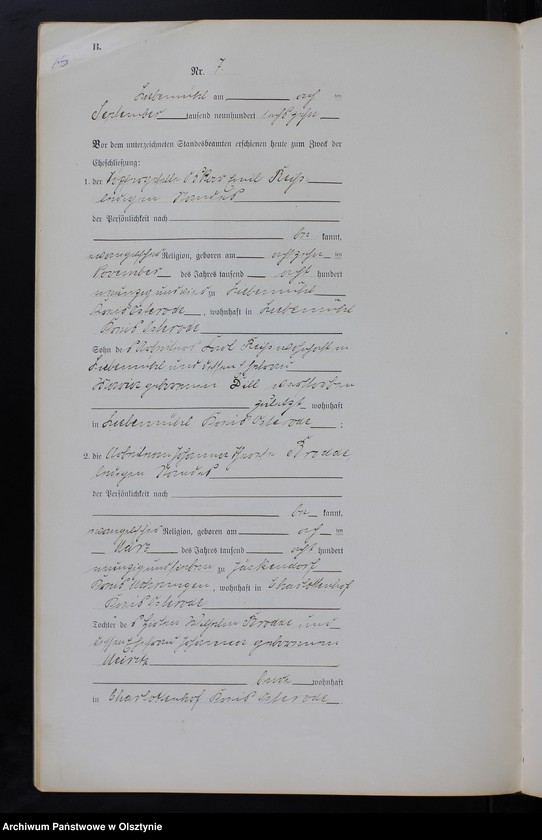 B.
Nr. 7
Liebemühl am acht ten
September tausend neunhundert sechszehn
Vor dem unterzeichneten Standesbeamten erschienen heute zum Zweck der
Eheschließung:
1. der Oskar Emil Reiß
ledigen Standes
der Persönlichkeit nach
be kannt,
evangelischer Religion, geboren am achtzehn ten
November des Jahres tausend acht hundert
neunzig und zu Liebemühl
Kreis Osterode, wohnhaft in Liebemühl
Kreis Osterode
Sohn des Arbeiters Karl Reiß wohnhaft in
Liebemühl und dessen Ehefrau
geborenen Dill verstorben
zuletzt wohnhaft
in Liebemühl Kreis Osterode ;
2. die Johanna
ledigen Standes
der Persönlichkeit nach
be kannt,
evangelischer Religion, geboren am acht ten
März des Jahres tausend acht hundert
neunzig und sieben zu Jäskendorf
Kreis Mohrungen, wohnhaft in Charlottenhof
Kreis Osterode
Tochter des Wilhelm und
dessen Ehefrau Johanna geborenen
beide wohnhaft
in Charlottenhof Kreis Osterode .
Archiwum Państwowe w Olsztynie